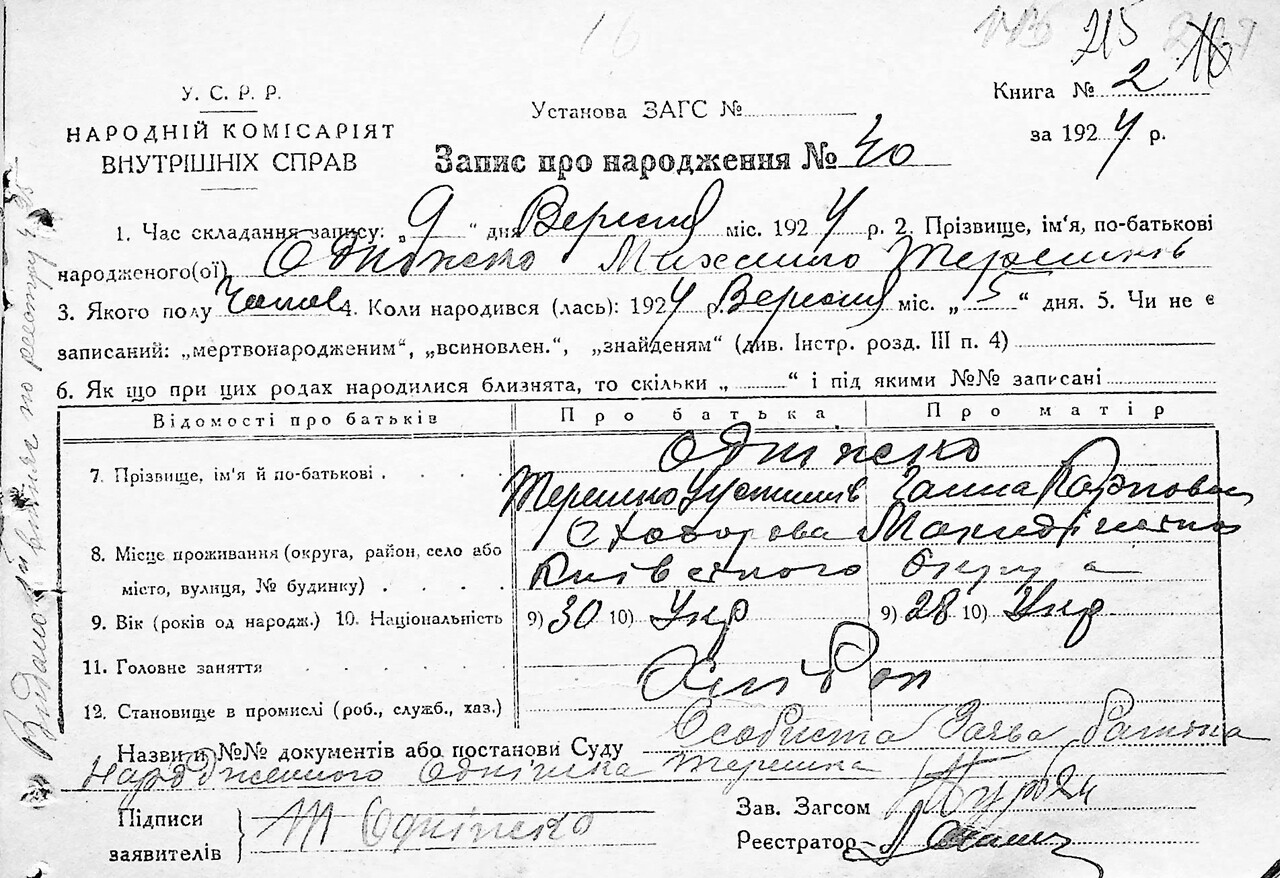 16
215
У. С. Р. Р.
НАРОДНІЙ КОМІСАРІЯТ
ВНУТРІШНІХ СПРАВ
Установа ЗАГС №
Книга № 2
за 1924 р.
Запис про народження № 40
1. Час складання запису: „ 9 “ дня Вересня міс. 1924 р. 2. Прізвище, ім'я, по-батькові
народженого(ої) Однопско Михайло Терешків
3. Якого полу Чолов 4. Коли народився (лась): 1924 р. Вересня міс. „ 5 “ дня. 5. Чи не є
записаний: „мертвонародженим“, „всиновлен.“, „знайденям“ (див. Інстр. розд. III п. 4)
6. Як що при цих родах народилися близнята, то скільки „ “ і під якими №№ записані
Відомості про батьків Про батька Про матір
7. Прізвище, ім'я й по-батькові
Терешко Устимів Ганна Карповна
8. Місце проживання (округа, район, село або
місто, вулиця, № будинку)
С Ходорова
Київського Округа
9. Вік (років од народж.) 10. Національність 9) 30 10) Укр 9) 28 10) Укр
11. Головне заняття
Хлібор
12. Становище в промислі (роб., служб., хаз.)
Назви и №№ документів або постанови Суду Особиста Заява батька
Народженного Однійска Терешка
Підписи
заявителів
Т Однійско
Зав. Загсом
Реєстратор